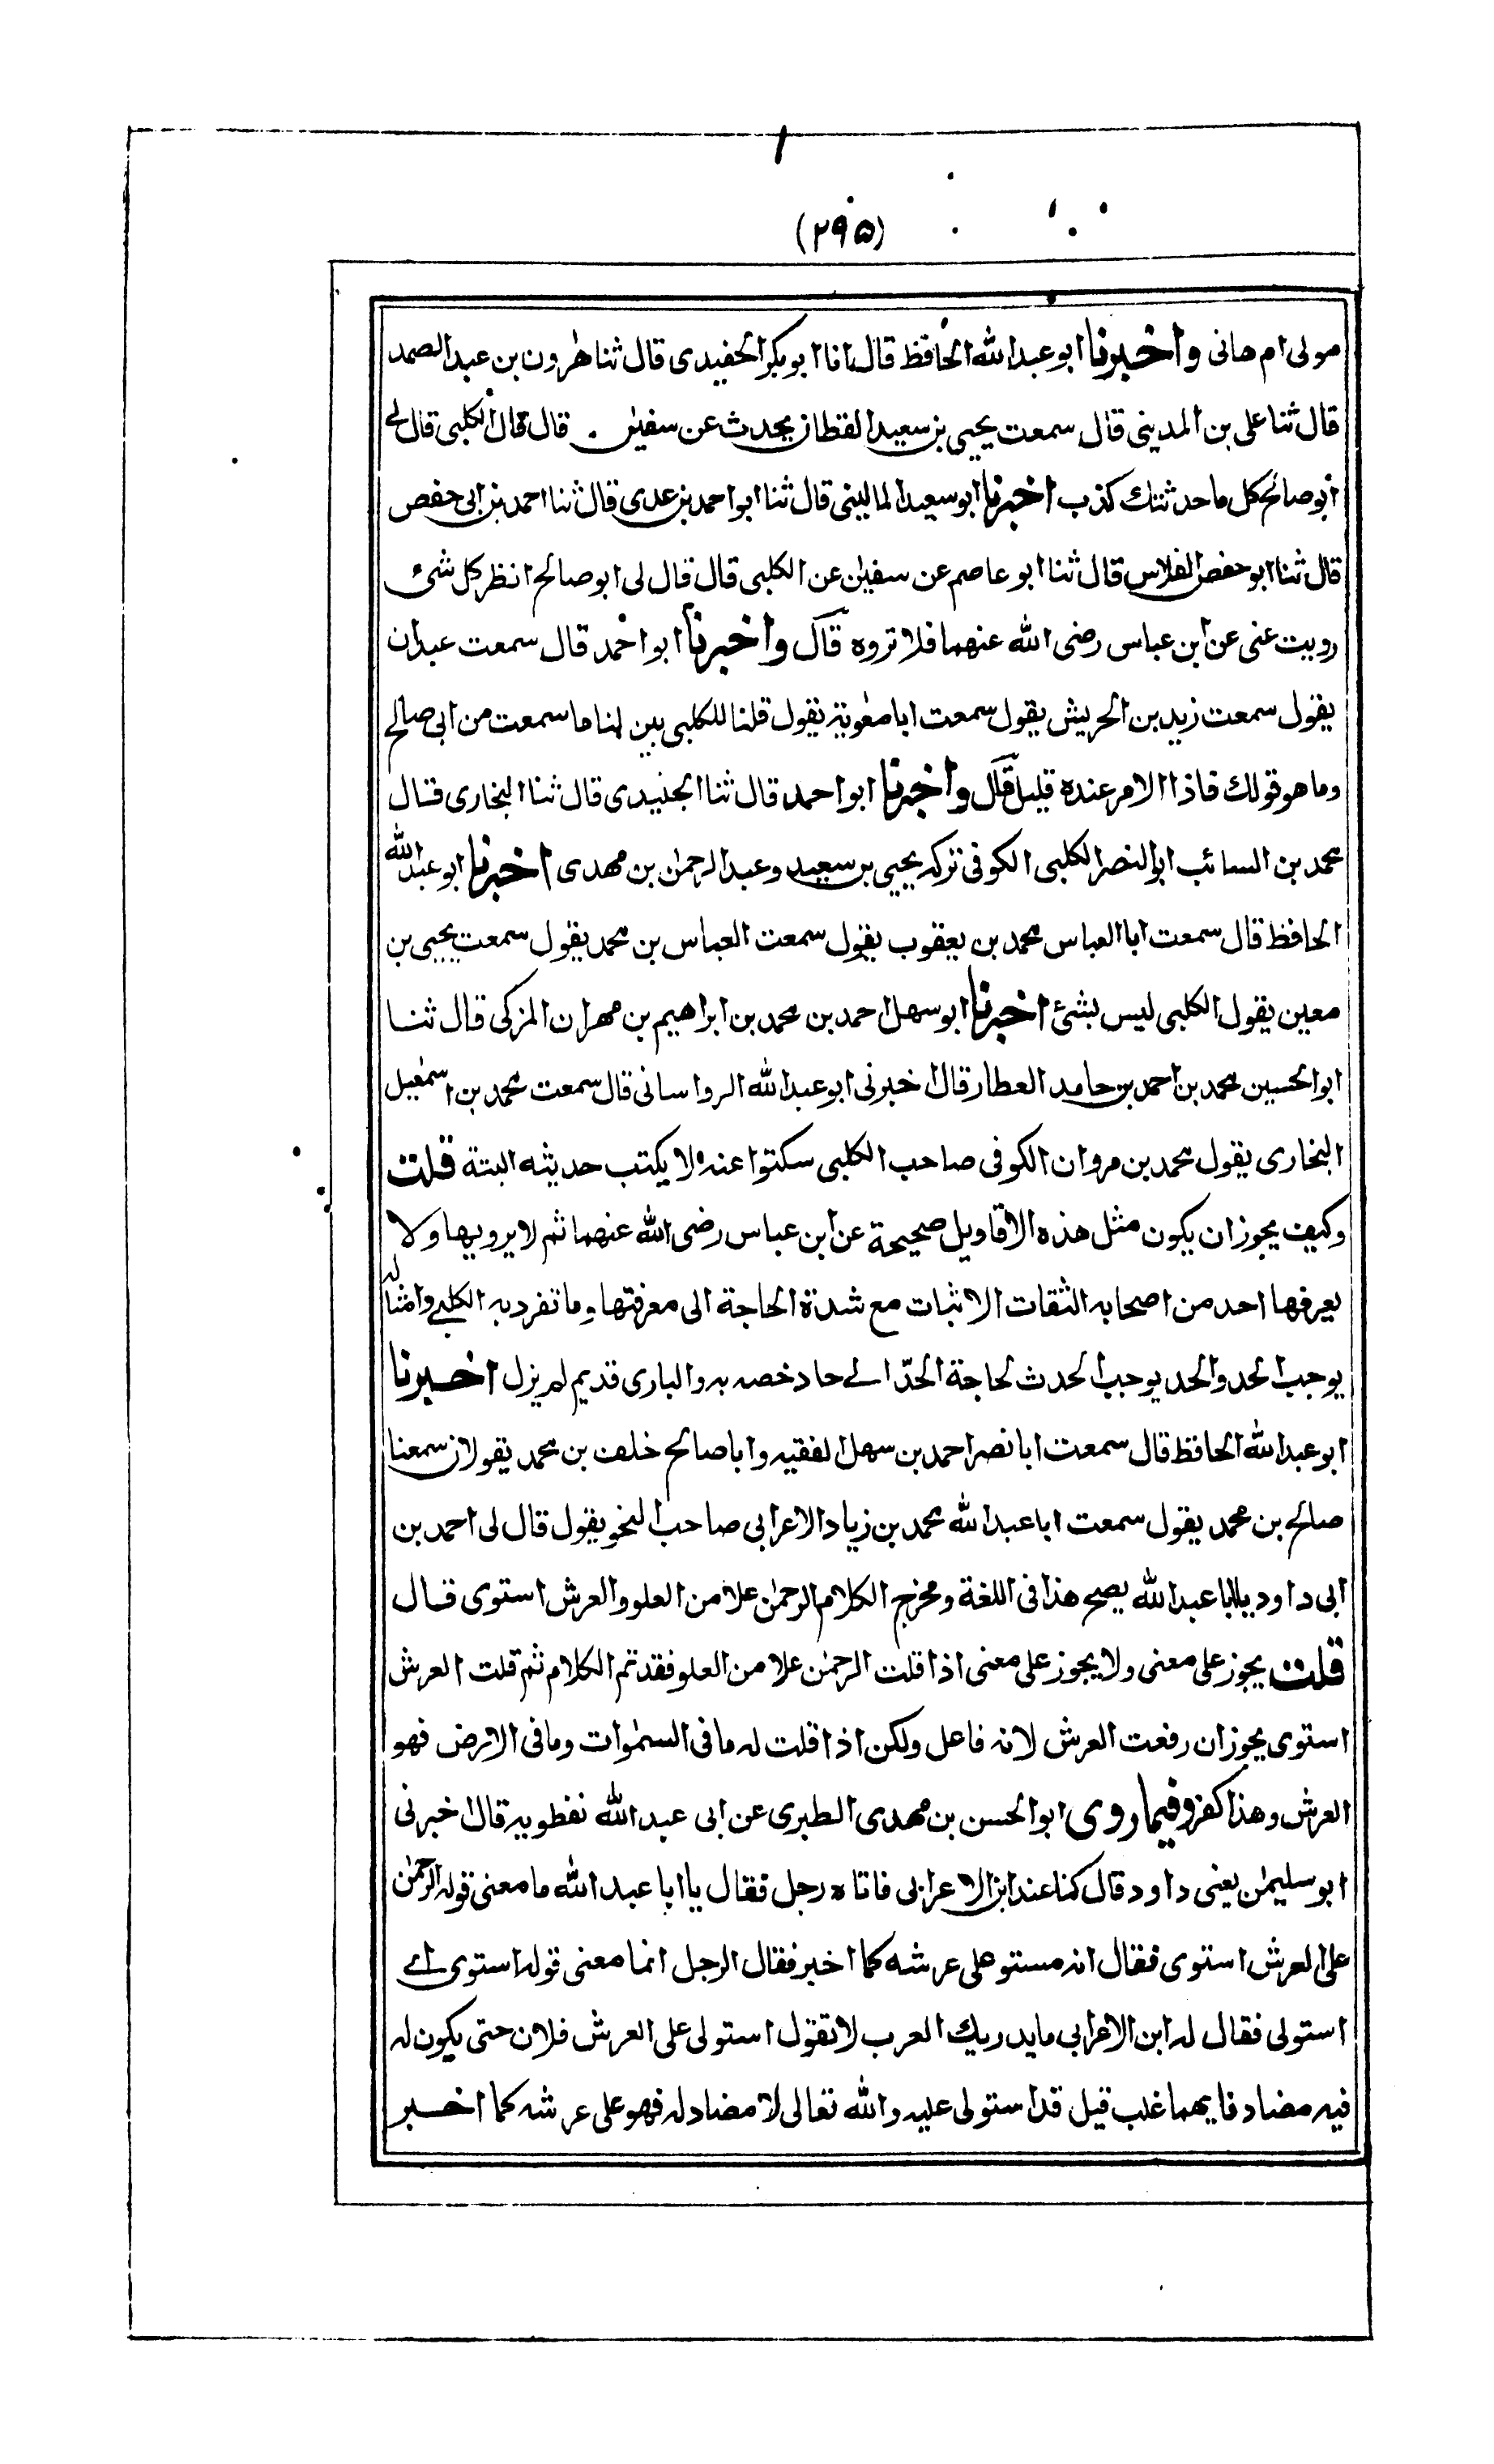 (۲۹۵)
مولى ام هانى واخبرنا ابو عبد الله الحافظ قال انا ابو بكر الحفيدى قال ثنا هٰرون بن عبد الصمد
قال ثنا على بن المدينى قال سمعت يحيى بن سعيد القطان يحدث عن سفيٰن قال قال الكلبى قال لے
أبو صالح كل ما حدثتك كذب اخبرنا ابو سعيد المالينى قال ثنا ابو احمد بن عدى قال ثنا احمد بن ابى حفص
قال ثنا ابو حفص الفلاس قال ثنا ابو عاصم عن سفيٰن عن الكلبى قال قال لى ابو صالح انظر كل شئ
رويت عنى عن ابن عباس رضى الله عنهما فلا تروه قال واخبرنا ابو احمد قال سمعت عبدان
يقول سمعت زيد بن الحريش يقول سمعت ابا معٰوية يقول قلنا للكلبى بين لنا ما سمعت من ابى صالح
وما هو قولك فاذا الامر عنده قليل قال واخبرنا ابو احمد قال ثنا الجنيدى قال ثنا البخارى قال
محمد بن السائب ابو النضر الكلبى الكوفى تركه يحيى بن سعيد وعبد الرحمٰن بن مهدى اخبرنا ابو عبد الله
الحافظ قال سمعت ابا العباس محمد بن يعقوب يقول سمعت العباس بن محمد يقول سمعت يحيى بن
معين يقول الكلبى ليس بشئ اخبرنا ابو سهل احمد بن محمد بن ابراهيم بن مهران المزكى قال ثنا
ابو الحسين محمد بن احمد بن حامد العطار قال اخبرنى ابو عبد الله الرواسانى قال سمعت محمد بن اسمٰعيل
البخارى يقول محمد بن مروان الكوفى صاحب الكلبى سكتوا عنه لا يكتب حديثه البتة قلت
وكيف يجوز ان يكون مثل هذه الاقاويل صحيحة عن ابن عباس رضى الله عنهما ثم لا يرويها ولا
يعرفها احد من اصحابه الثقات الاثبات مع شدة الحاجة الى معرفتها وما تفرد به الكلبے وامثاله
يوجب الحد والحد يوجب الحدث لحاجة الحدّ الے حاد خصه به والبارى قديم لم يزل اخبرنا
ابو عبد الله الحافظ قال سمعت ابا نصر احمد بن سهل الفقيه وابا صالح خلف بن محمد يقولان سمعنا
صالح بن محمد يقول سمعت ابا عبد الله محمد بن زياد الاعرابى صاحب النحو يقول قال لى احمد بن
ابى داود يا ابا عبد الله يصح هذا فى اللغة ومخرج الكلام الرحمٰن علا من العلو والعرش استوى قال
قلت يجوز على معنى ولا يجوز على معنى اذا قلت الرحمٰن علا من العلو فقد تم الكلام ثم قلت العرش
استوى يجوز ان رفعت العرش لانه فاعل ولكن اذا قلت له ما فى السمٰوات وما فى الارض فهو
العرش وهذا كفر وفيما روى ابو الحسن بن مهدى الطبرى عن ابى عبد الله نفطويه قال اخبرنى
ابو سليمٰن يعنى داود قال كنا عند ابن الاعرابى فاتاه رجل فقال يا ابا عبد الله ما معنى قوله الرحمٰن
على العرش استوى فقال انه مستو على عرشه كما اخبر فقال الرجل انما معنى قوله استوى اے
استولى فقال له ابن الاعرابى ما يدريك العرب لا تقول استولى على العرش فلان حتى يكون له
فيه مضاد فايهما غلب قيل قد استولى عليه والله تعالى لا مضاد له فهو على عرشه كما اخبر